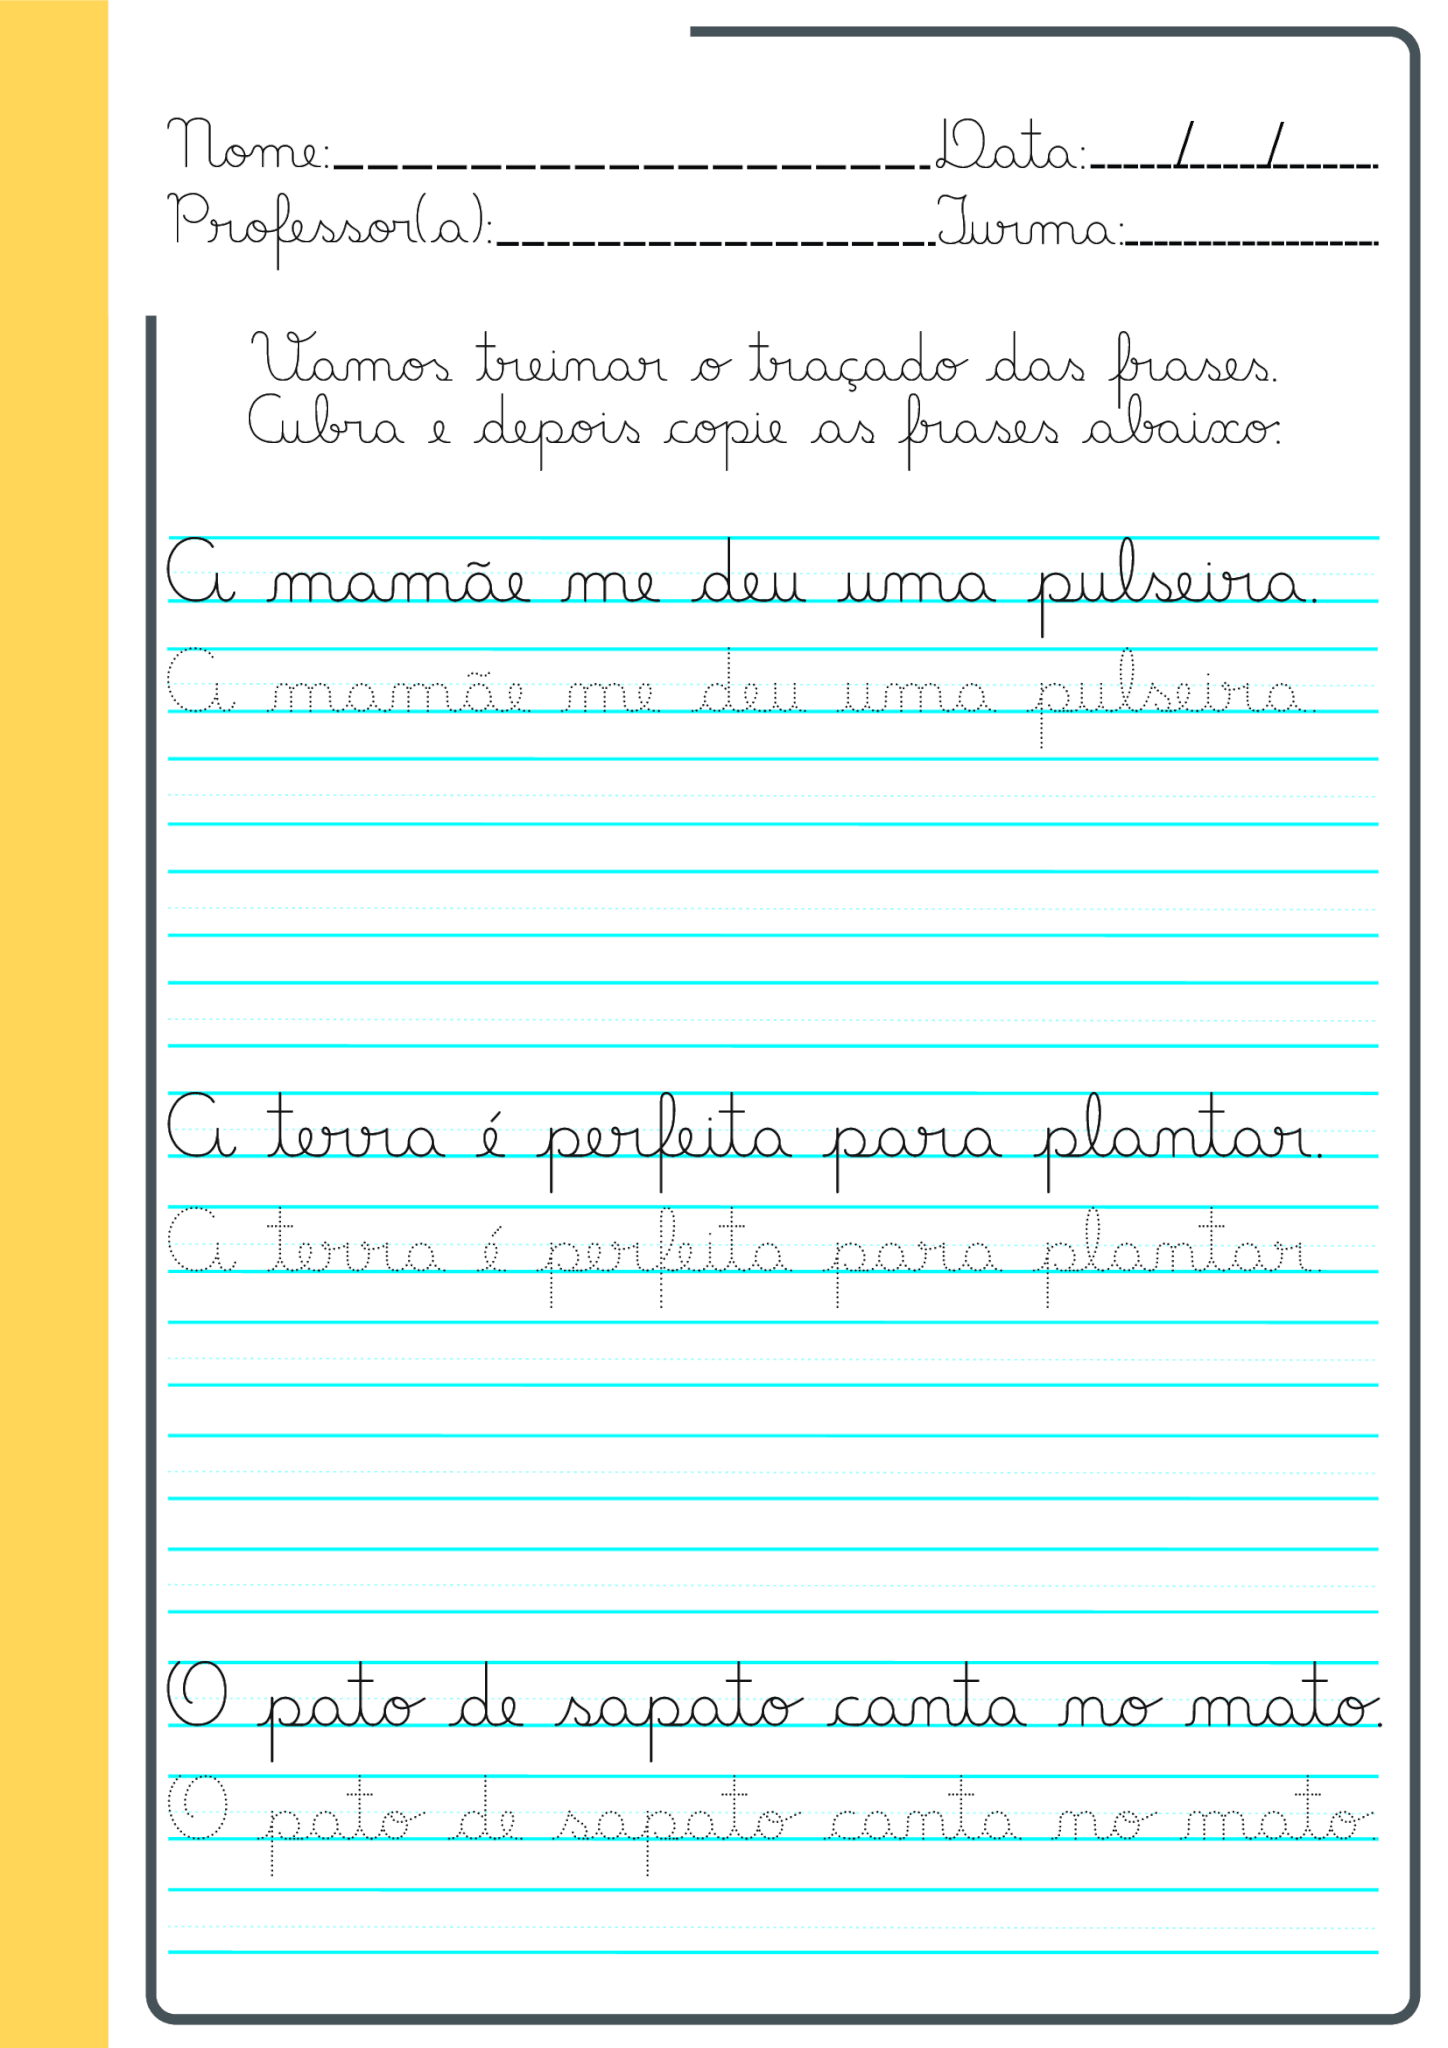 Nome: Data: / /
Professor(a): Turma:
Vamos treinar o traçado das frases.
Cubra e depois copie as frases abaixo:
A mamãe me deu uma pulseira.
A mamãe me deu uma pulseira.
A terra é perfeita para plantar.
A terra é perfeita para plantar.
O pato de sapato canta no mato.
O pato de sapato canta no mato.